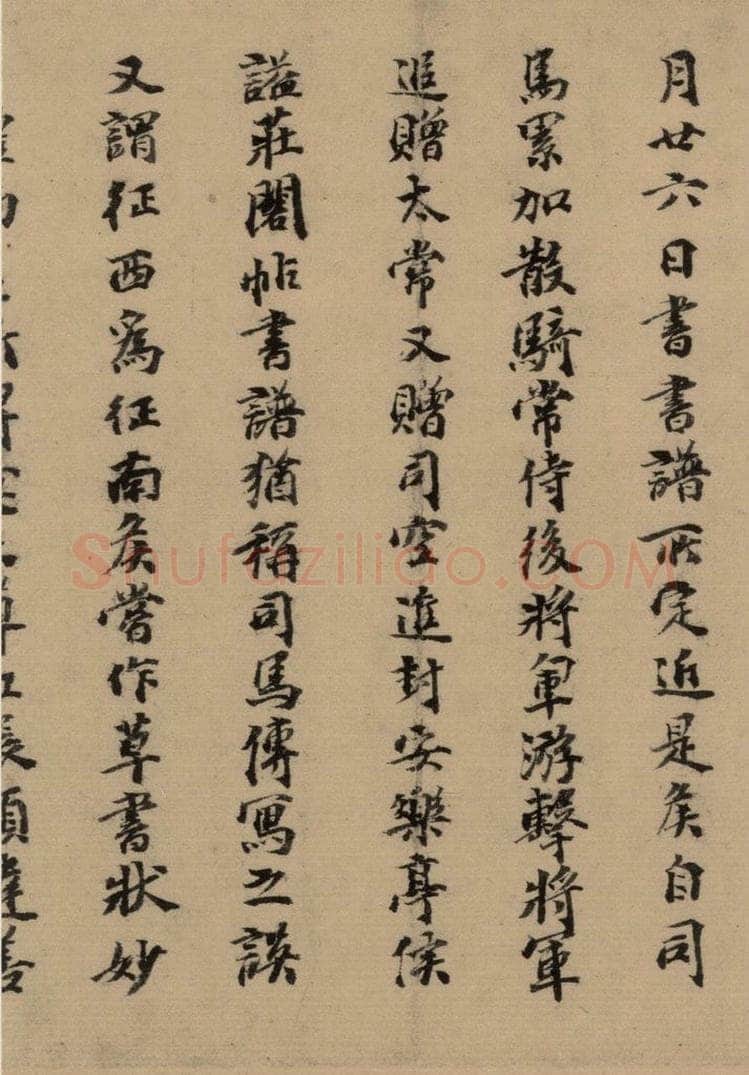 月廿六日書書譜所定近是矦自司
馬累加散騎常侍後將軍游擊將軍
追贈太常又贈司空進封安樂亭侯
謚莊閣帖書譜猶稱司馬傳寫之誤
又謂征西為征南矦嘗作草書狀妙
Shufaziliao.COM